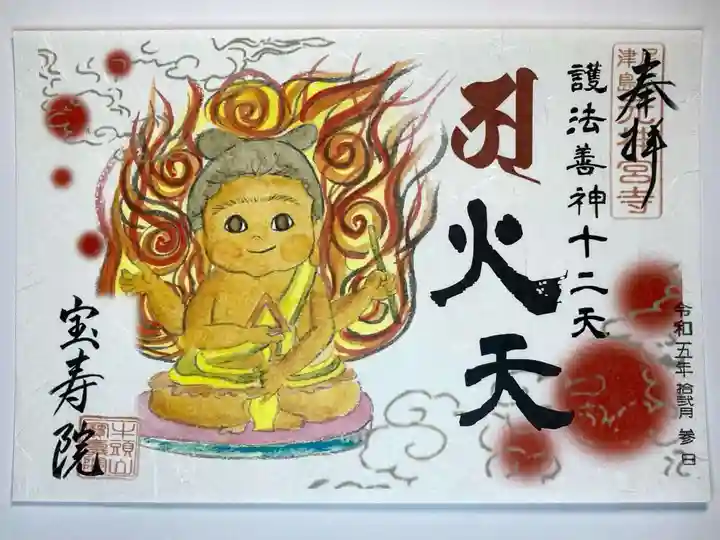 奉拝
護法善神十二天
火天
令和五年 拾弐月 参日
宝寿院